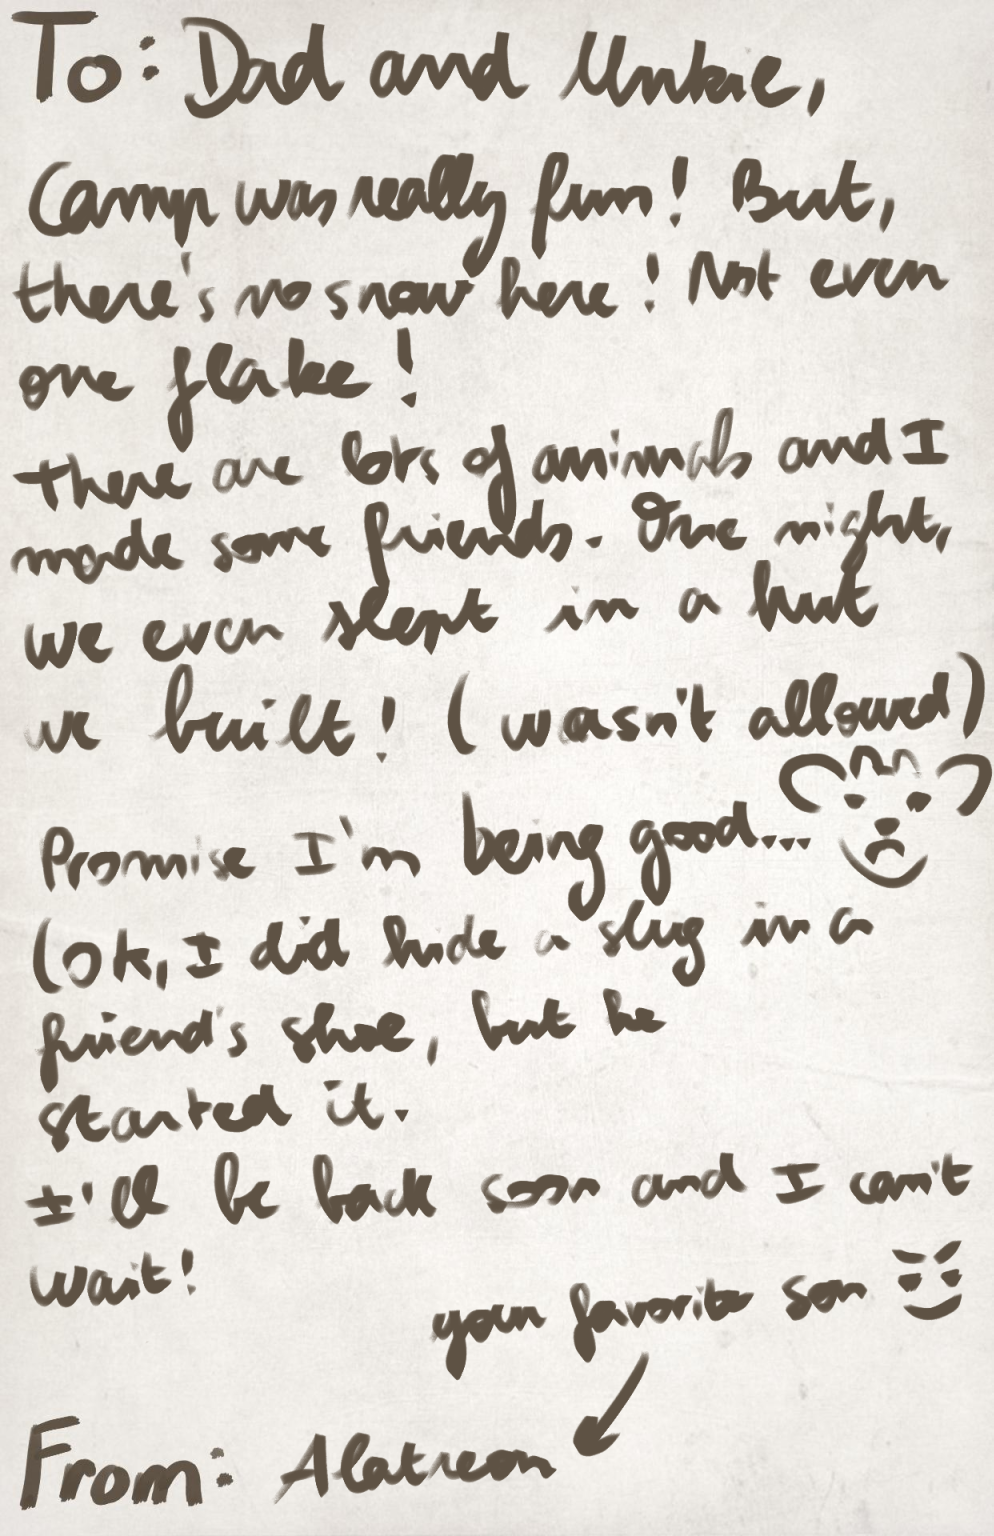 To: Dad and Unkie,
Camp was really fun! But,
there's no snow here! Not even
one flake!
There are lots of animals and I
made some friends. One night,
we even slept in a hut
we built! (wasn't allowed)
Promise I'm being good...
(Ok, I did hide a slug in a
friend's shoe, but he
started it.
I'll be back soon and I can't
wait!
your favorite son
From: Alatreon